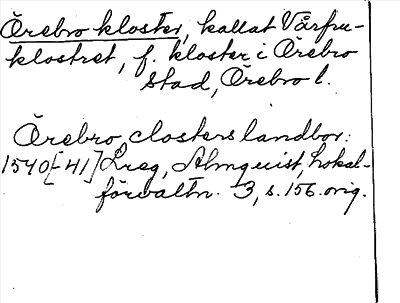 Örebro kloster, kallat Vårfru-
klostret, f. kloster i Örebro
stad, Örebro l.
Örebro closters landbor:
1540[-41] Lreg, Almquist, Lokal-
förvaltn. 3, s. 156. orig.